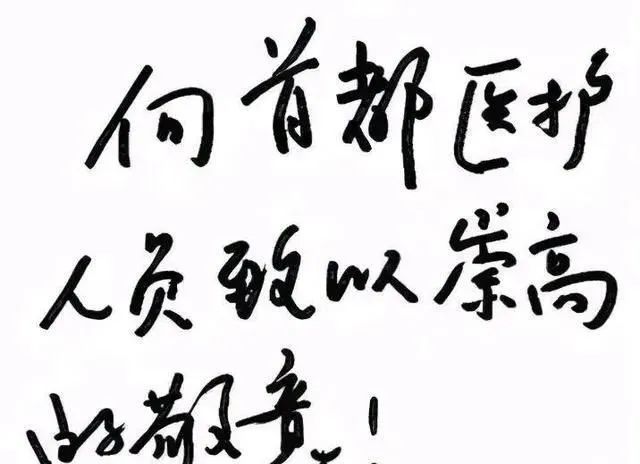 向首都医护
人员致以崇高
的敬意!